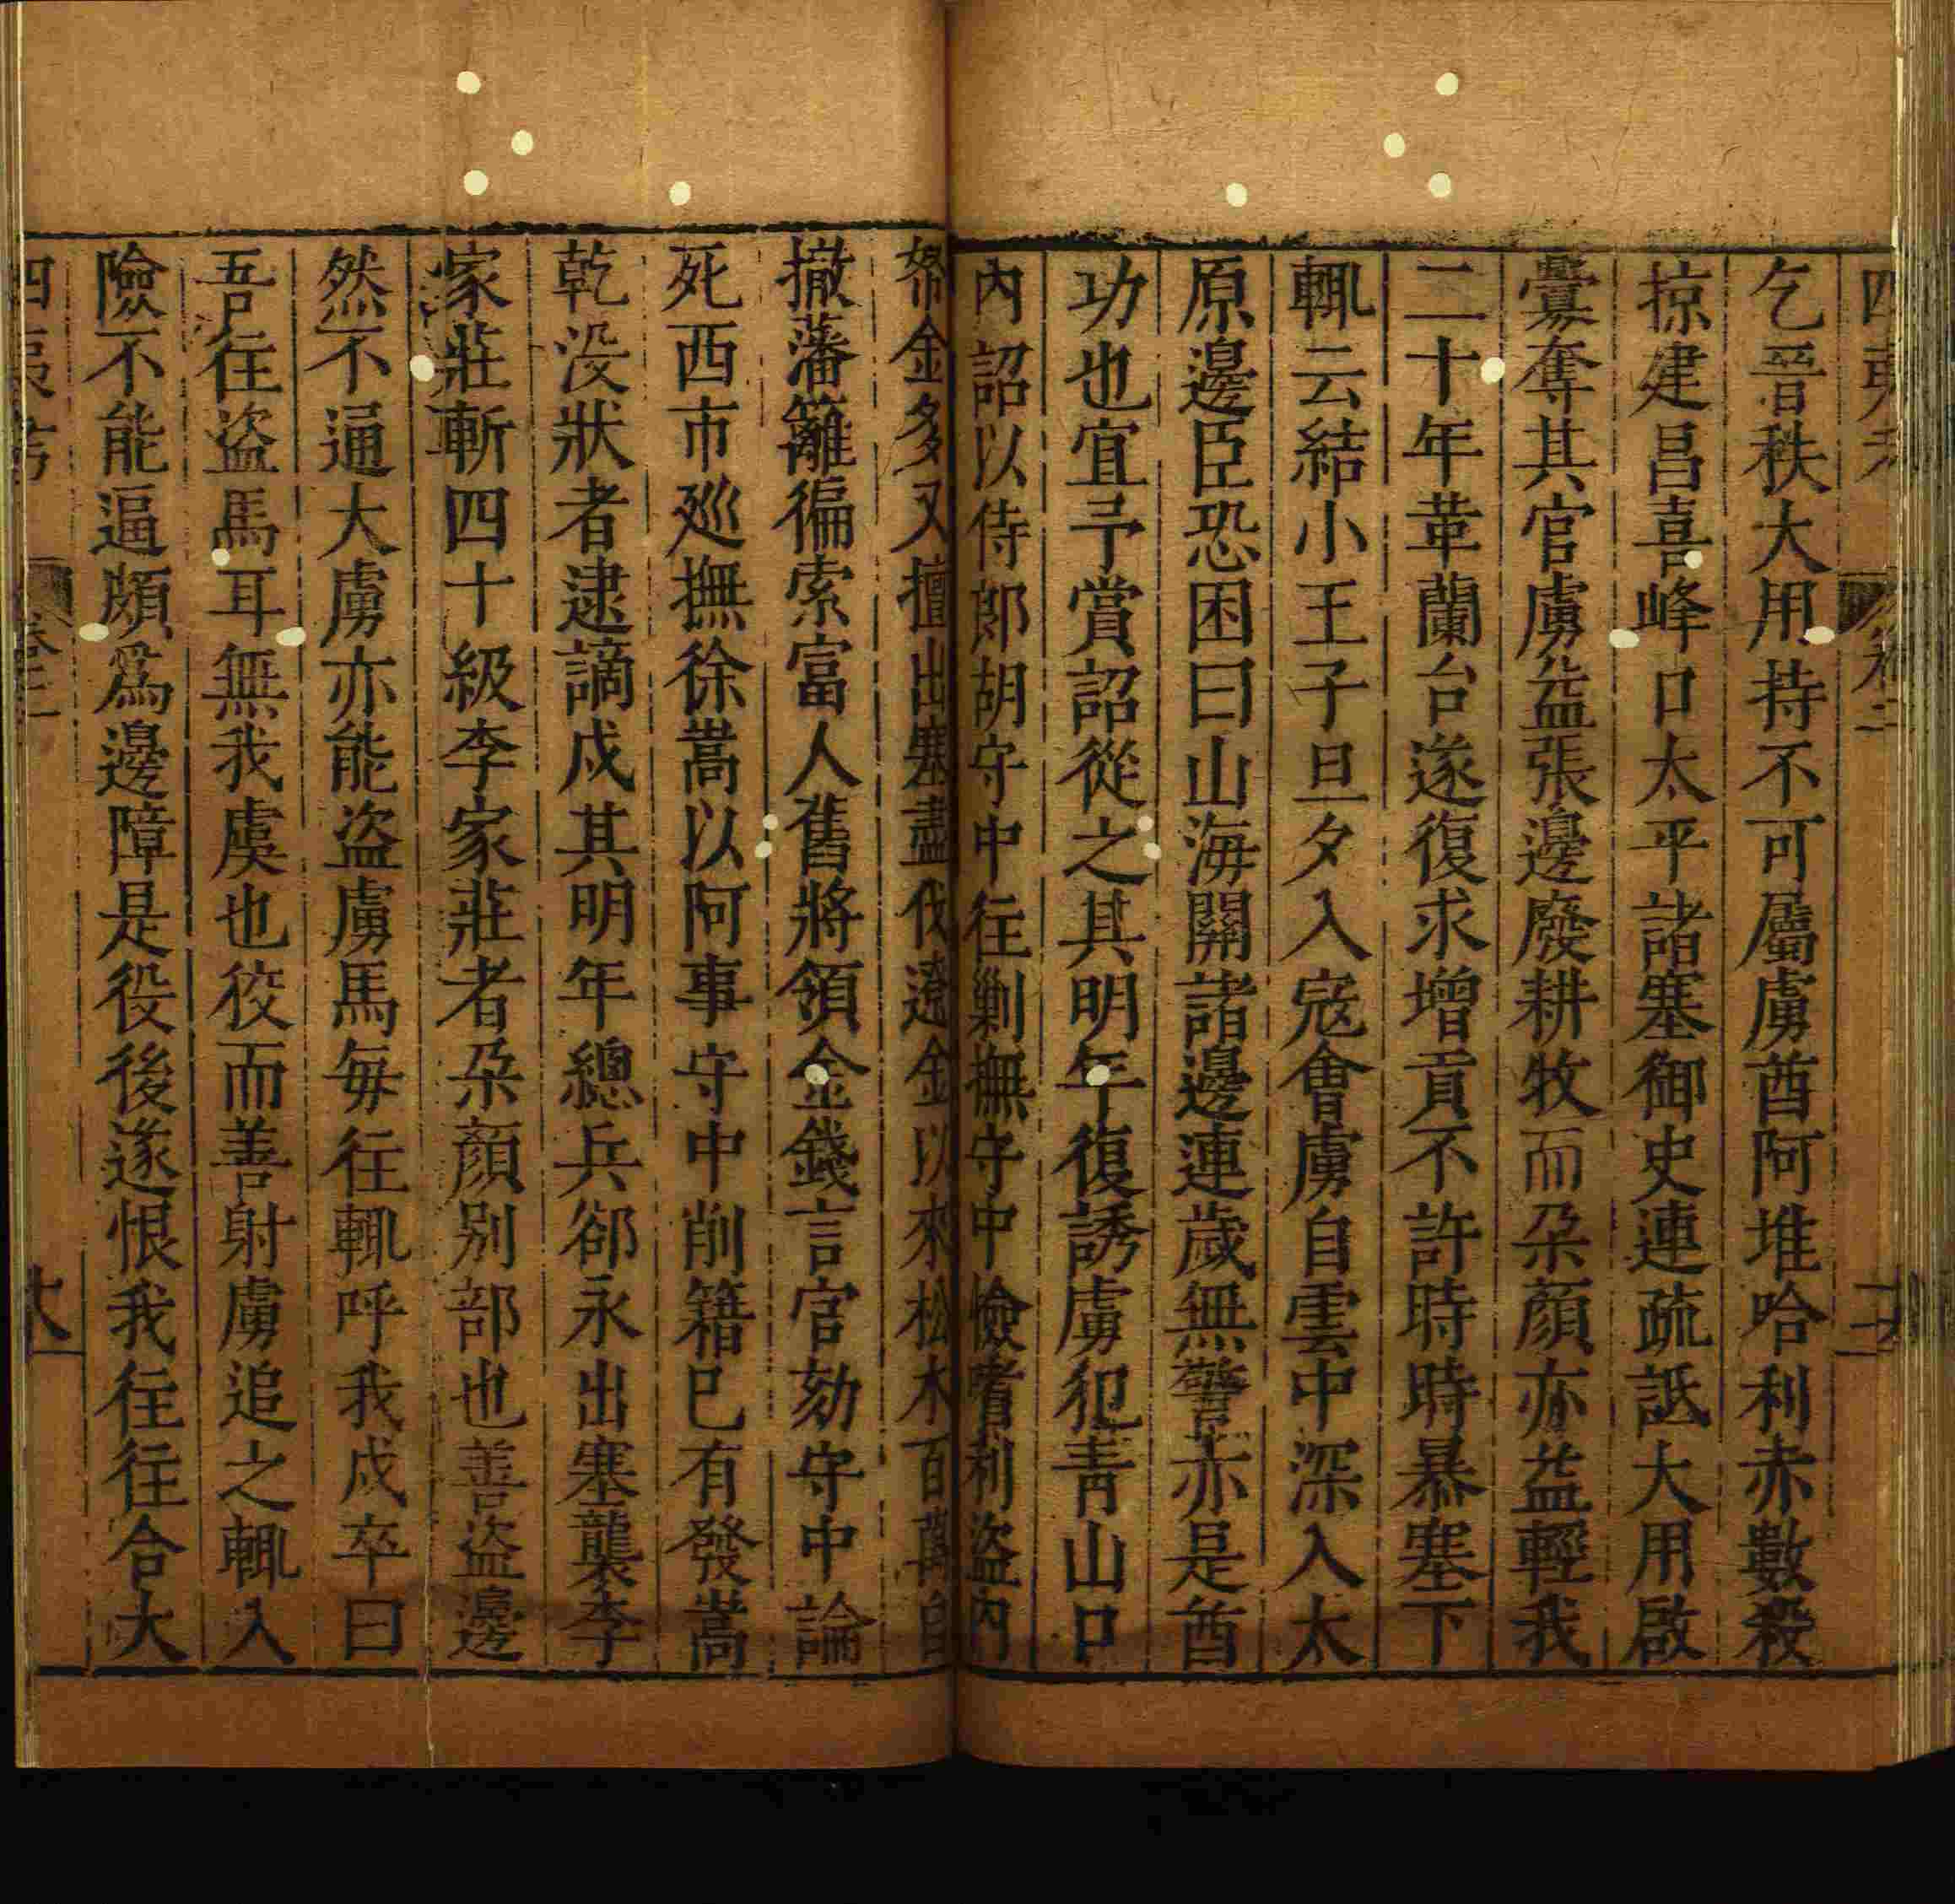 乞晉秩大用持不可屬虜酋阿堆哈利赤數殺
掠建昌喜峰口太平諸塞御史連疏詆大用啟
釁奪其官虜益張邊廢耕牧而朵顏亦益輕我
二十年革蘭台遂復求增貢不許時時暴塞下
輒云結小王子旦夕入寇會虜自雲中深入太
原邊臣恐困曰山海關諸邊連歲無警亦是酋
功也宜予賞詔從之其明年復誘虜犯青山口
內詔以侍郎胡守中往剿撫守中憸者利盜內
帑金多又擅出塞盡伐遼金以來松木百萬自
撤藩籬徧索富人舊將領金錢言官劾守中論
死西市廵撫徐嵩以阿事守中削籍已有發嵩
乾没狀者逮謫戍其明年總兵郤永出塞襲李
家莊斬四十級李家莊者朵顏别部也善盜邊
然不通大虜亦能盜虜馬每往輒呼我戍卒曰
吾往盜馬耳無我虞也狡而善射虜追之輒入
險不能逼頗爲邊障是役後遂恨我往往合大
四夷考